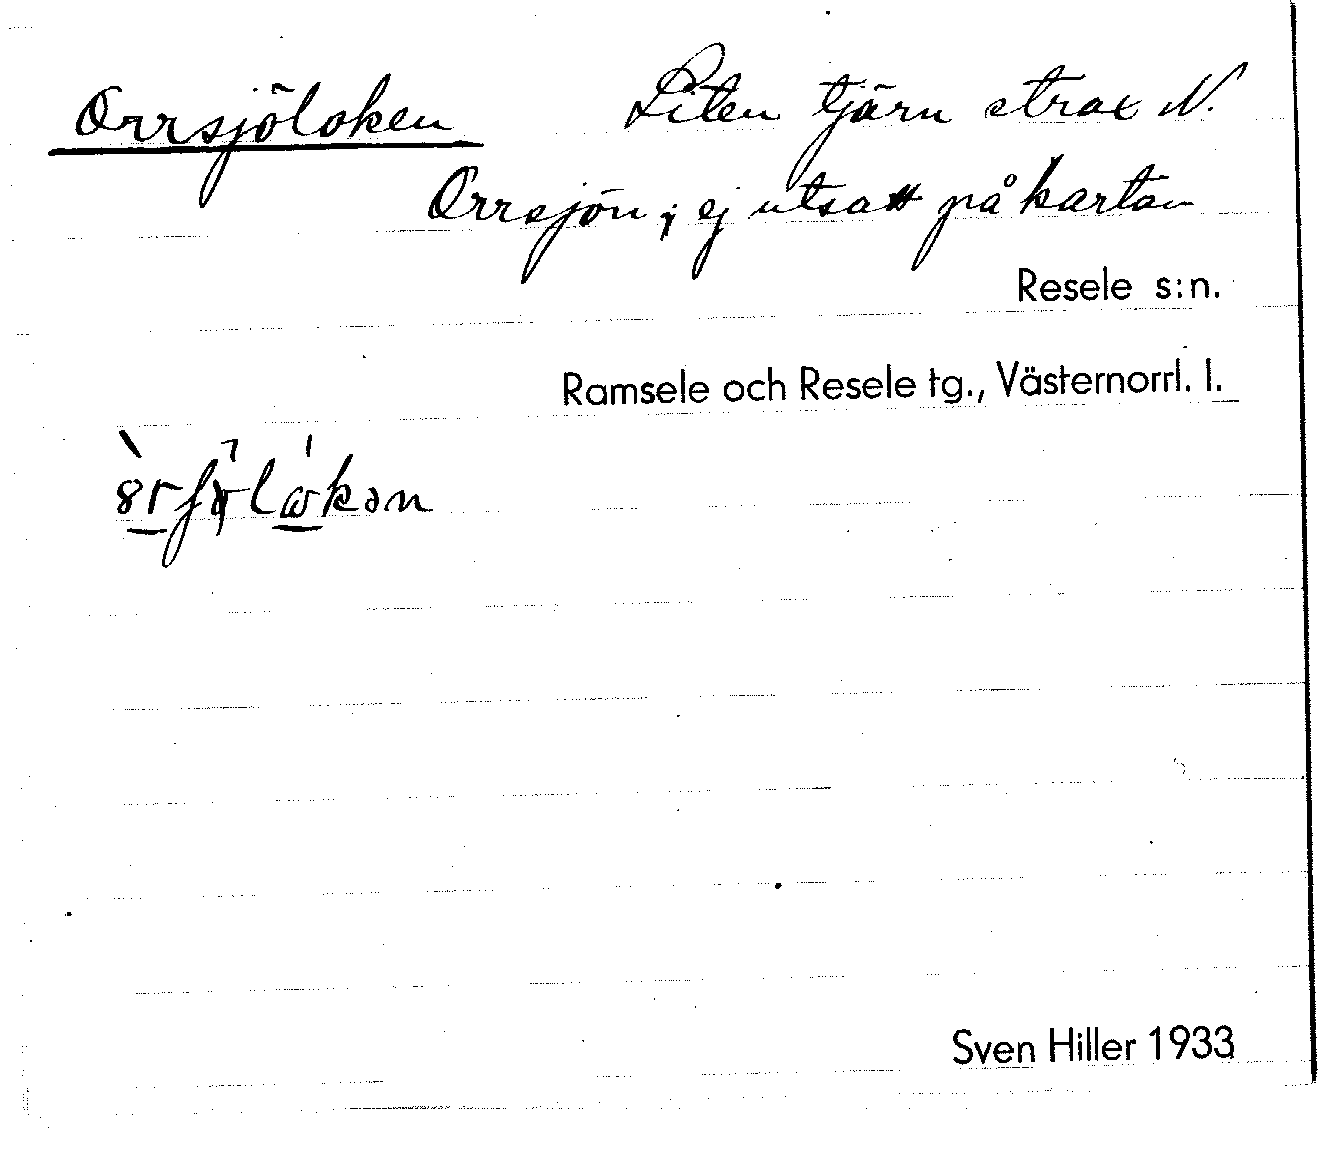 Orrsjöloken Liten tjärn strax N.
Orrsjön; ej utsatt på kartan
Resele s:n.
Ramsele och Resele tg., Västernorrl. l.
Sven Hiller 1933